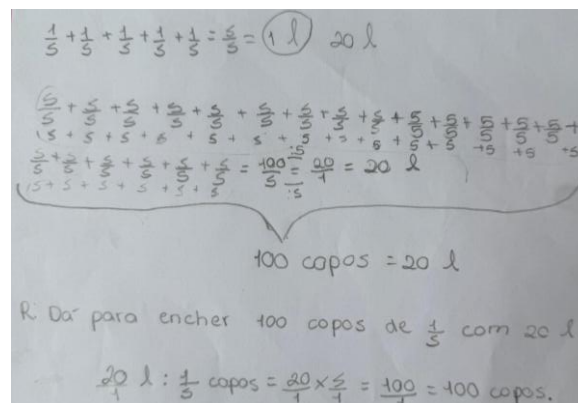 1/5 + 1/5 + 1/5 + 1/5 + 1/5 = 5/5 = 1 l 20 l
5/5 + 5/5 + 5/5 + 5/5 + 5/5 + 5/5 + 5/5 + 5/5 + 5/5 + 5/5 + 5/5 + 5/5 + 5/5 + 5/5 +
5 + 5 + 5 + 5 + 5 + 5 + 5 + 5 + 5 + 5 + 5 + 5 + 5 + 5
5/5 + 5/5 + 5/5 + 5/5 + 5/5 + 5/5 = 100/5 :5/:5 = 20/1 = 20 l
5 + 5 + 5 + 5 + 5 + 5
100 copos = 20 l
R Dá para encher 100 copos de 1/5 com 20 l
20/1 l : 1/5 copos = 20/1 x 5/1 = 100/1 = 100 copos.